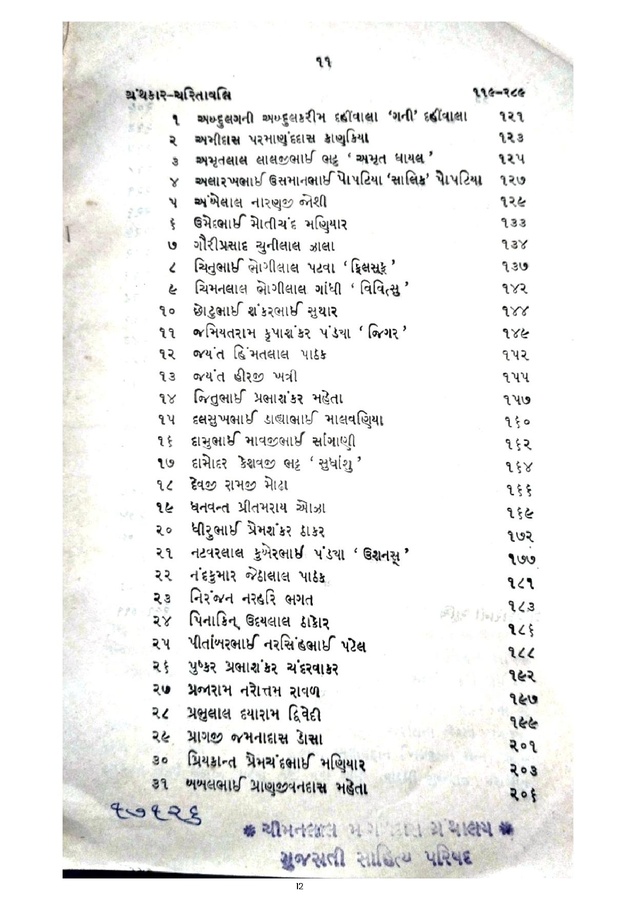 ૧૧
ગ્રંથકાર-ચરિતાવલિ ૧૧૯-૨૮૯
૧ અબ્દુલગની અબ્દુલકરીમ દહીંવાલા ‘ગની’ દહીંવાલા ૧૨૧
૨ અમીદાસ પરમાણંદદાસ કાણકિયા ૧૨૩
૩ અમૃતલાલ લાલજીભાઈ ભટ્ટ ‘ અમૃત ઘાયલ ’ ૧૨૫
૪ અલારખભાઈ ઉસમાનભાઈ પોપટિયા ‘સાલિક’ પોપટિયા ૧૨૭
૫ અંબેલાલ નારણજી જોશી ૧૨૯
૬ ઉમેદભાઈ મોતીચંદ મણિયાર ૧૩૩
૭ ગૌરીપ્રસાદ ચુનીલાલ ઝાલા ૧૩૪
૮ ચિનુભાઈ ભોગીલાલ પટવા ‘ ફિલસૂફ ’ ૧૩૭
૯ ચિમનલાલ ભોગીલાલ ગાંધી ‘ વિવિત્સુ ’ ૧૪૨
૧૦ છોટુભાઈ શંકરભાઈ સુથાર ૧૪૪
૧૧ જમિયતરામ કૃપાશંકર પંડ્યા ‘ જિગર ’ ૧૪૯
૧૨ જયંત હિંમતલાલ પાઠક ૧૫૨
૧૩ જયંત હીરજી ખત્રી ૧૫૫
૧૪ જિતુભાઈ પ્રભાશંકર મહેતા ૧૫૭
૧૫ દલસુખભાઈ ડાહ્યાભાઈ માલવણિયા ૧૬૦
૧૬ દામુભાઈ માવજીભાઈ સાંગાણી ૧૬૨
૧૭ દામોદર કેશવજી ભટ્ટ ‘ સુધાંશુ ’ ૧૬૪
૧૮ દેવજી રામજી મોઢા ૧૬૬
૧૯ ધનવન્ત પ્રીતમરાય ઓઝા ૧૬૯
૨૦ ધીરુભાઈ પ્રેમશંકર ઠાકર ૧૭૨
૨૧ નટવરલાલ કુબેરભાઈ પંડ્યા ‘ ઉશનસ્ ’ ૧૭૭
૨૨ નંદકુમાર જેઠાલાલ પાઠક ૧૮૧
૨૩ નિરંજન નરહરિ ભગત ૧૮૩
૨૪ પિનાકિન્ ઉદયલાલ ઠાકોર ૧૮૬
૨૫ પીતાંબરભાઈ નરસિંહભાઈ પટેલ ૧૮૮
૨૬ પુષ્કર પ્રભાશંકર ચંદરવાકર ૧૯૨
૨૭ પ્રજારામ નરોત્તમ રાવળ ૧૯૭
૨૮ પ્રભુલાલ દયારામ દ્વિવેદી ૧૯૯
૨૯ પ્રાગજી જમનાદાસ ડોસા ૨૦૧
૩૦ પ્રિયકાન્ત પ્રેમચંદભાઈ મણિયાર ૨૦૩
૩૧ બબલભાઈ પ્રાણજીવનદાસ મહેતા ૨૦૬
૧૭૧૨૬
ચીમનલાલ મંગળદાસ ગ્રંથાલય
ગુજરાતી સાહિત્ય પરિષદ
12